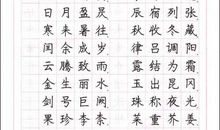 日月盈昃 辰宿列张
寒来暑往 秋收冬藏
闰余成岁 律吕调阳
云腾致雨 露结为霜
金生丽水 玉出昆冈
剑号巨阙 珠称夜光
果珍李柰 菜重芥姜